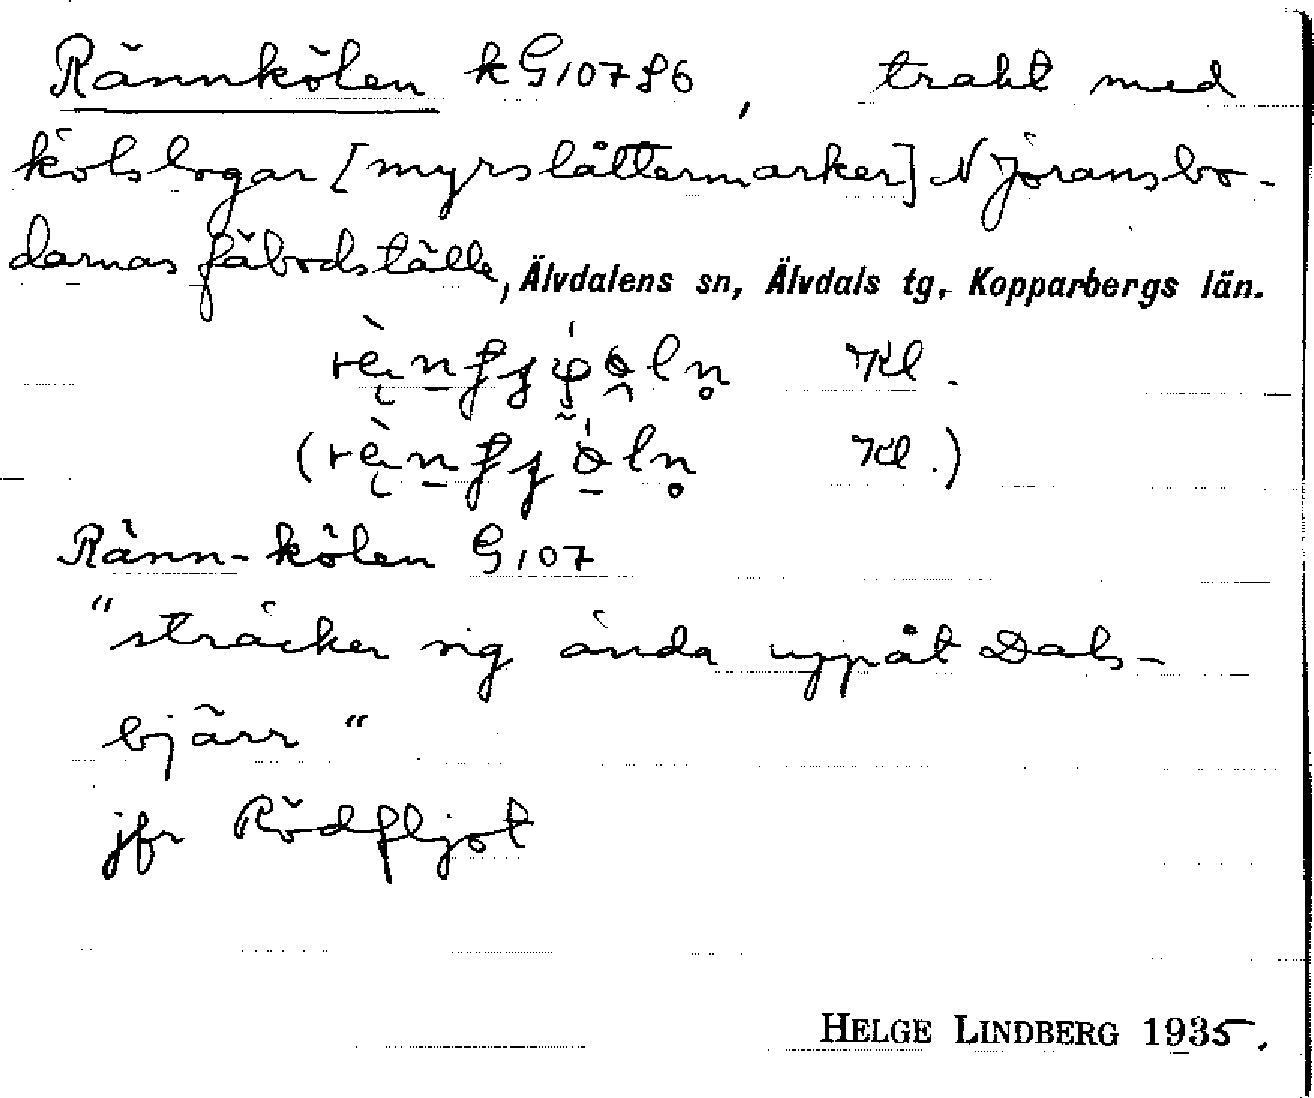 Rännkölen kG107f6, trakt med
kölslogar [myrslåttermarker] N Jöransbo-
darnas fäbodställe, Älvdalens sn, Älvdals tg, Kopparbergs län.
Kl.
Kl.)
Ränn-kölen G107
"sträcker sig ända uppåt Dals-
bjärr"
jfr Rödfljot
HELGE LINDBERG 1935.